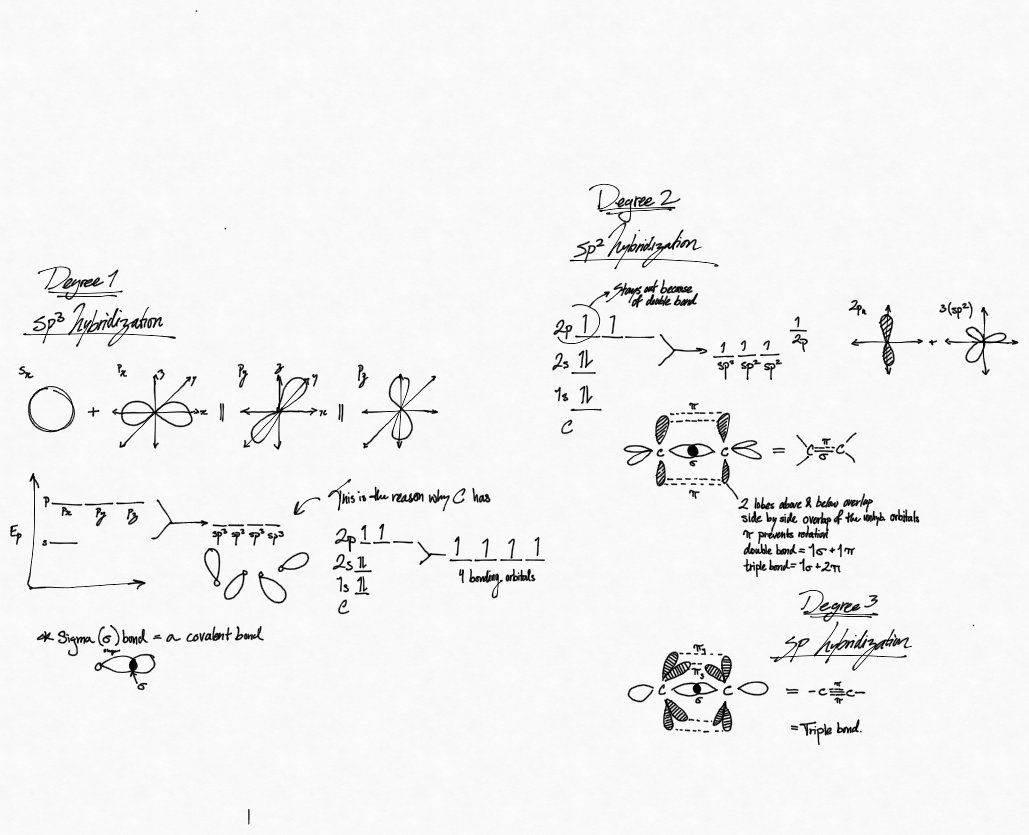 Degree 1
sp³ hybridization
Sx
Px
z
y
x
Py
z
y
x
Pz
Ep
P
Px Py Pz
s
sp³ sp³ sp³ sp³
This is the reason why C has
2p 1 1
2s 1l
1s 1l
C
1 1 1 1
4 bonding orbitals
* Sigma (σ) bond = a covalent bond
σ
Degree 2
sp² hybridization
Stays out because
of double bond
2p 1 1
2s 1l
1s 1l
C
1 1 1
sp² sp² sp²
1
2p
2px
+
3(sp²)
π
C σ C
π
=
C π C
σ
2 lobes above & below overlap
side by side overlap of the unhyb. orbitals
π prevents rotation
double bond = 1σ + 1π
triple bond = 1σ + 2π
Degree 3
sp hybridization
C σ C
= -C≡C-
π
π
= Triple bond.